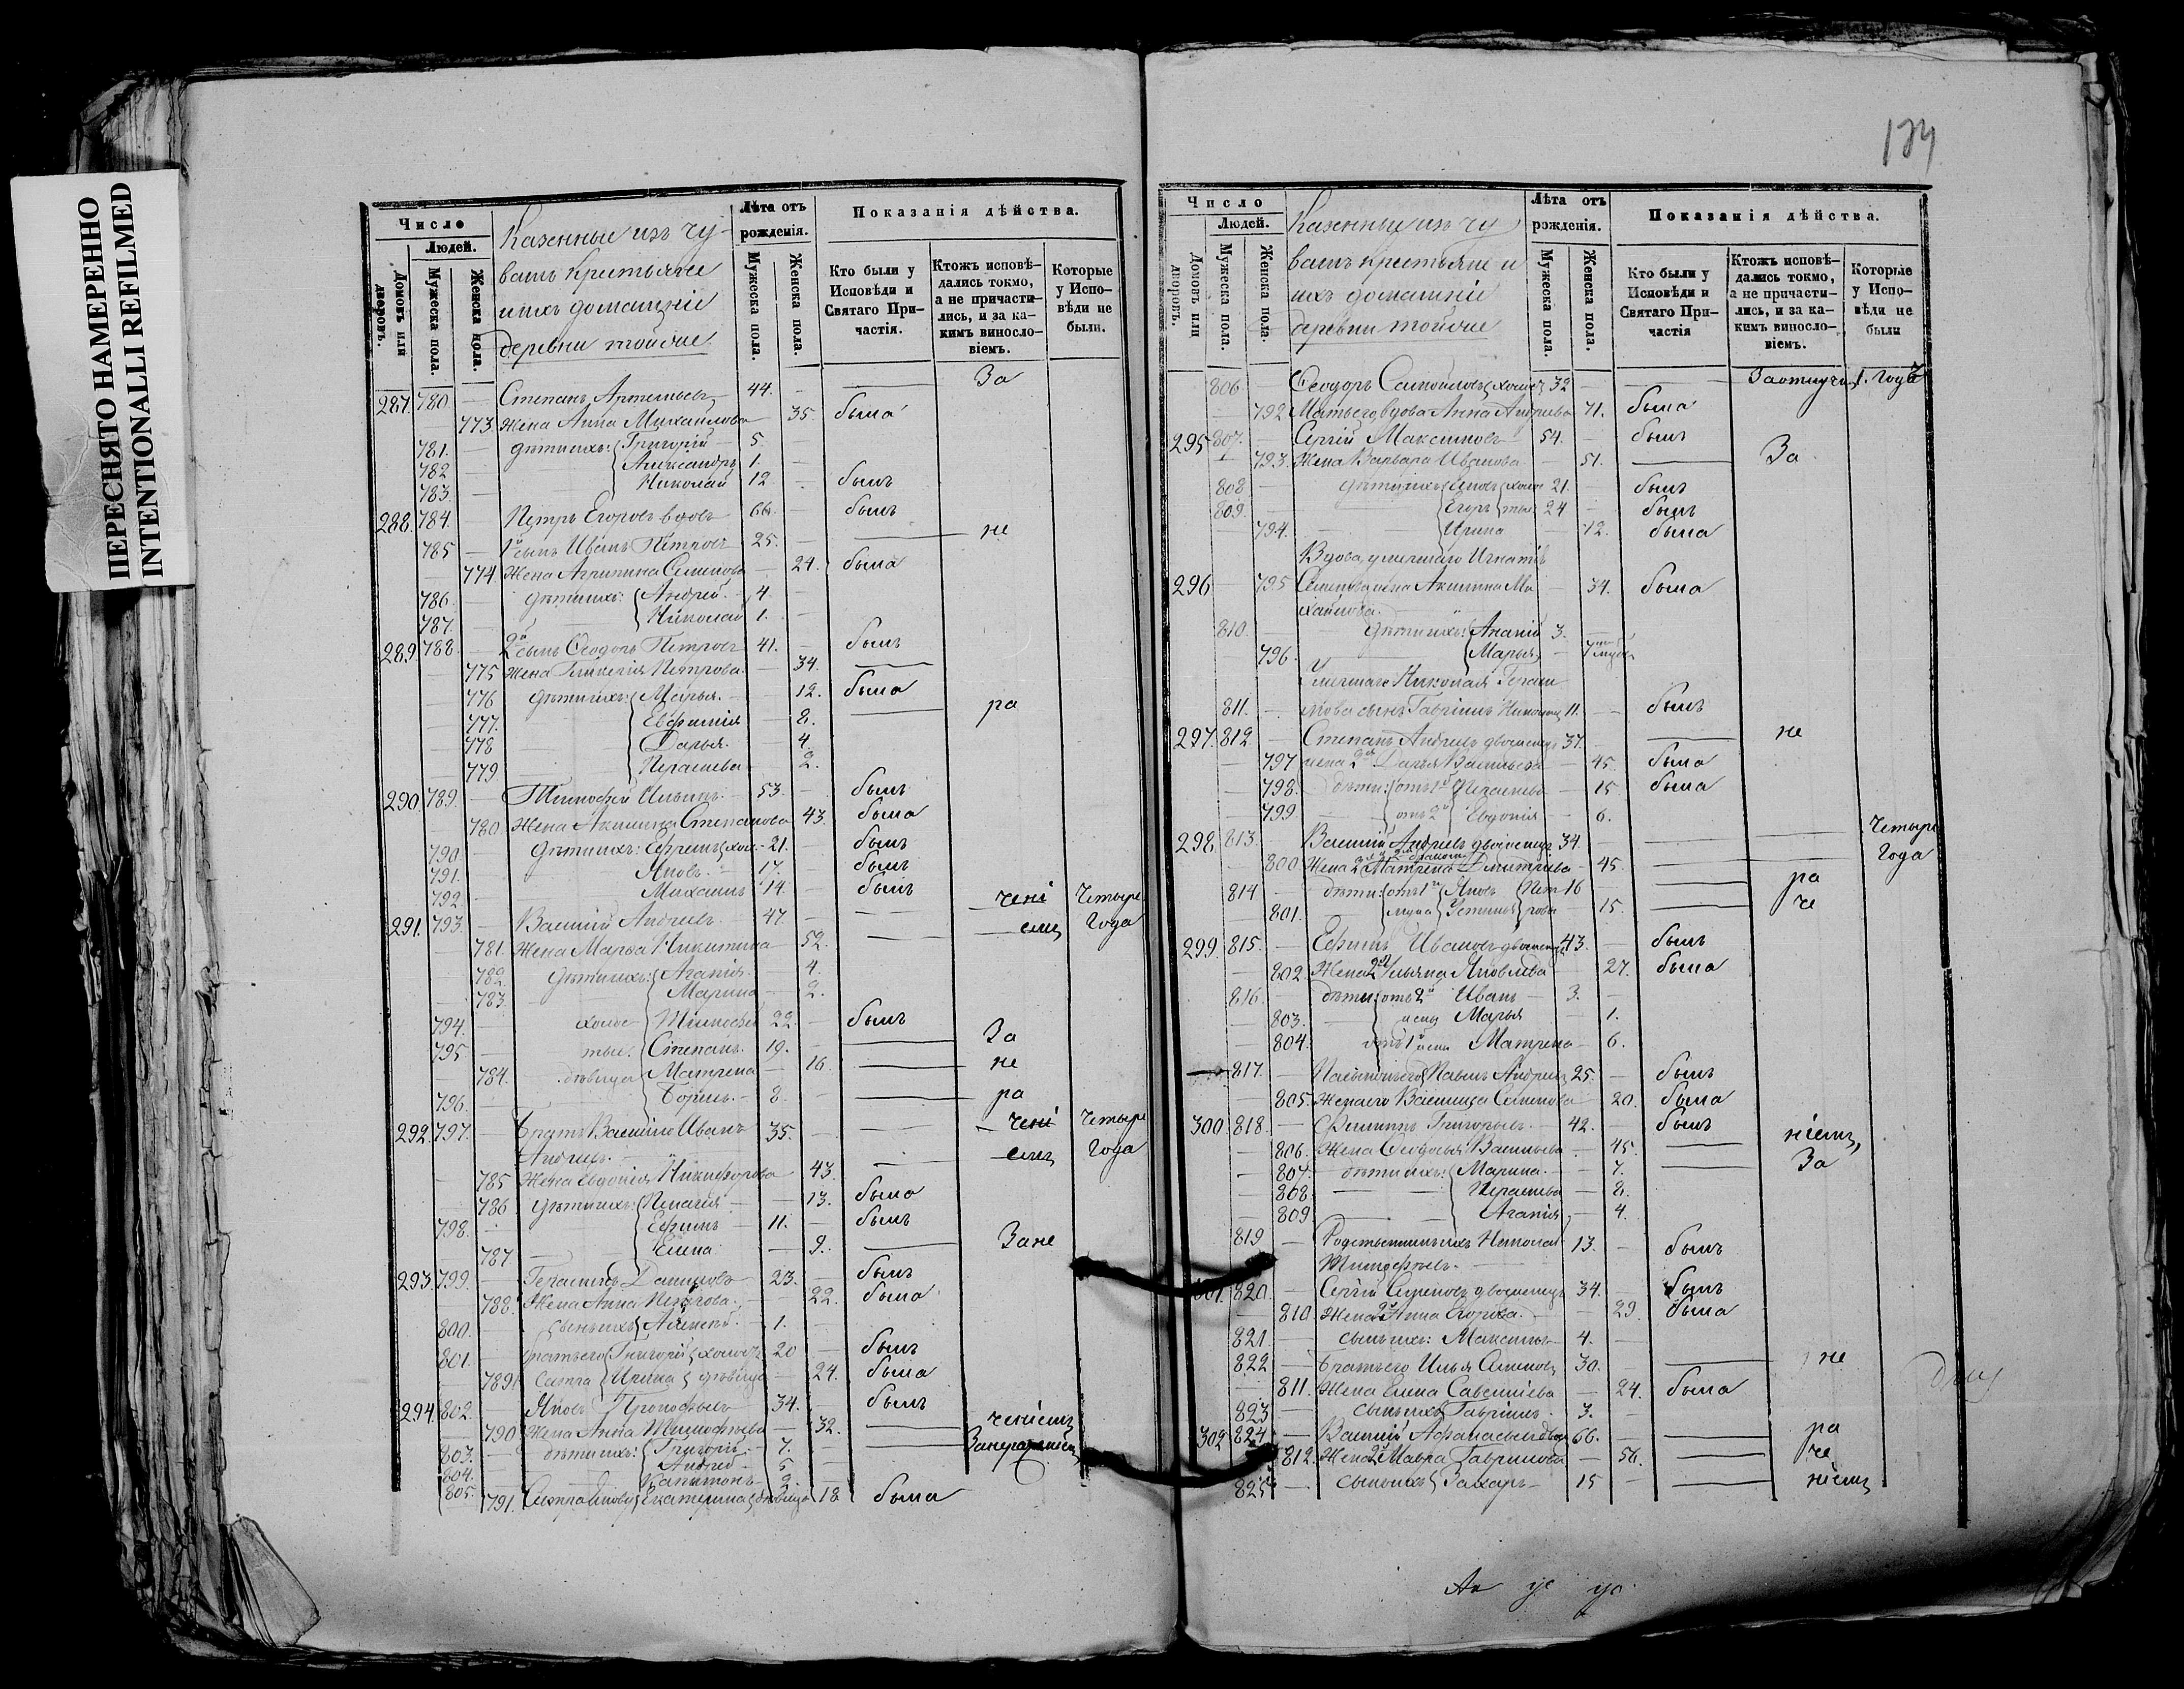 ПЕРЕСНЯТО НАМЕРЕННО
INTENTIONALLI REFILMED
Число
Людей.
Домовъ или дворовъ.
Мужеска пола.
Женска пола.
Казенные изъ чу-
вашъ крестьяне
и ихъ домашніе
деревни
Лѣта отъ рожденія.
Мужеска пола.
Женска пола.
Показанія дѣйства.
Кто были у Исповѣди и Святаго При-частія.
Ктожъ исповѣ-дались токмо, а не причасти-лись, и за ка-кимъ винословіемъ.
Которые у Испо-вѣди не были.
За
287. 780 Степанъ Артемьевъ 44.
773. Жена Анна Михайлова 35. была
781. дѣти ихъ: Григорій 5.
782 Александръ 1.
783. Николай 12 былъ
288. 784. Петръ Егоровъ вдовъ 66. былъ
785 1й сынъ Иванъ Петровъ 25. не
774. Жена Агрипина Семенова 24. была
786. дѣти ихъ: Андрей 4
787. Николай 1.
289. 788 2й сынъ Ѳеодоръ Петровъ 41. былъ
775 Жена Гликерія Петрова. 34.
776 дѣти ихъ: Марья. 12. была
777. Евфимія 8. ра
778 Дарья. 4.
779 Параскева 2.
290. 789. Тимофей Ильинъ. 53. былъ
780. Жена Акилина Степанова 43. была
790. дѣти ихъ: Ефремъ холос. 21. былъ
791. Яковъ. 17. былъ
792. Михаилъ 14. былъ
чені Четыре
291. 793. Василій Андреевъ. 47. емъ Года
781. Жена Марѳа Никитина 52.
782. дѣти ихъ: Агапія. 4.
783. Марина 2.
794. холос- Тимофей 22. былъ
795 тые. Степанъ. 19. За
784. дѣвица Матрена 16. не
796. Борисъ. 8. ра
чені Четыре
292. 797. Братъ Василію Иванъ 35.
Андреевъ. емъ Года
785 Жена Евдокія Никифорова 43.
786 дѣти ихъ: Пелагея 13. была
798. Ефимъ 11. былъ
787 Елена 9. Зане
293. 799. Герасимъ Даниловъ 23. былъ
788. Жена Анна Петрова. 22. была
800. сынъ ихъ Алексѣй. 1.
801. братъ его Григорій холос. 20 былъ
789. сестра Ирина дѣвица 24. была
294. 802. Яковъ Прокофьевъ 34. былъ
790 Жена Анна Тимофеева 32. ченіемъ
803. дѣти ихъ: Григорій. 7.
804. Андрей 5
805. Капитонъ 2.
791. Сестра Якову Екатерина дѣвица 18 была
Число
Людей.
Домовъ или дворовъ.
Мужеска пола.
Женска пола.
Казенные изъ чу
вашъ крестьяне и
ихъ домашніе
деревни
Лѣта отъ рожденія.
Мужеска пола.
Женска пола.
Показанія дѣйства.
Кто были у Исповѣди и Святаго При-частія
Ктожъ исповѣ-дались токмо, а не причасти-лись, и за ка-кимъ винословіемъ.
Которые у Испо-вѣди не были
806. Ѳеодоръ Самойловъ холос 32 1. Годъ
792 Мать его вдова Анна Андреева 71. была
295 807. Сергій Максимовъ 54. былъ
793. Жена Варвара Иванова 51. За
808. дѣти ихъ холос 21. былъ
809. Егоръ тые 24 былъ
794. Ирина 12. была
Вдова, умершаго Игнатія
296 795 жена Акилина Ми 34. была
хайлова.
810. дѣти ихъ: Ананій 3.
796. Марья
Умершаго Николая Гераси
811. мова сынъ Гавріилъ 11. былъ
297. 812 Степанъ Андреевъ двоеженецъ 37. не
797 жена 2я Дарья Васильева 45. была
798. дѣти: отъ 1й Параскева 15. была
799 отъ 2й Евдокія 6.
298. 813. Василій Андреевъ двоеженецъ 34. Четыре
800 Жена 2я Матрена Дмитріева 45. Года
814 дѣти: отъ 1го Яковъ Пет 16 ра
801. мужа Устинья рова 15. че
299. 815. Ефимъ Ивановъ двоеженецъ 43. былъ
802. Жена 2я Ульяна Яковлева 27. была
816. дѣти: отъ 2й Иванъ 3.
803. жены Марья 1.
804. отъ 1й жены Матрена 6.
817. Павелъ Андреевъ 25. былъ
805. Жена его Василиса Семенова 20. была
300. 818. Филиппъ Григорьевъ. 42. былъ ніемъ,
806. Жена Ѳеодосья Васильева 45. За
807. дѣти ихъ: Марина. 7.
808. Параскева 8.
809. Агапія 4.
819 Родственникъ ихъ Николай 13. былъ
Тимофѣевъ.
301. 820. Сергій Семеновъ двоеженецъ 34. былъ
810. Жена 2я Анна Егорова. 29. была
821. сынъ ихъ: Максимъ 4.
822 братъ его Илья Семеновъ 30. не
811. Жена Елена Савельева 24. была
823 сынъ ихъ Гавріилъ. 3.
302 824 Василій Афанасьевъ 66. ра
812. Жена 2я Мавра Гаврилова 56. че
825 сынъ ихъ Захаръ 15 ніемъ